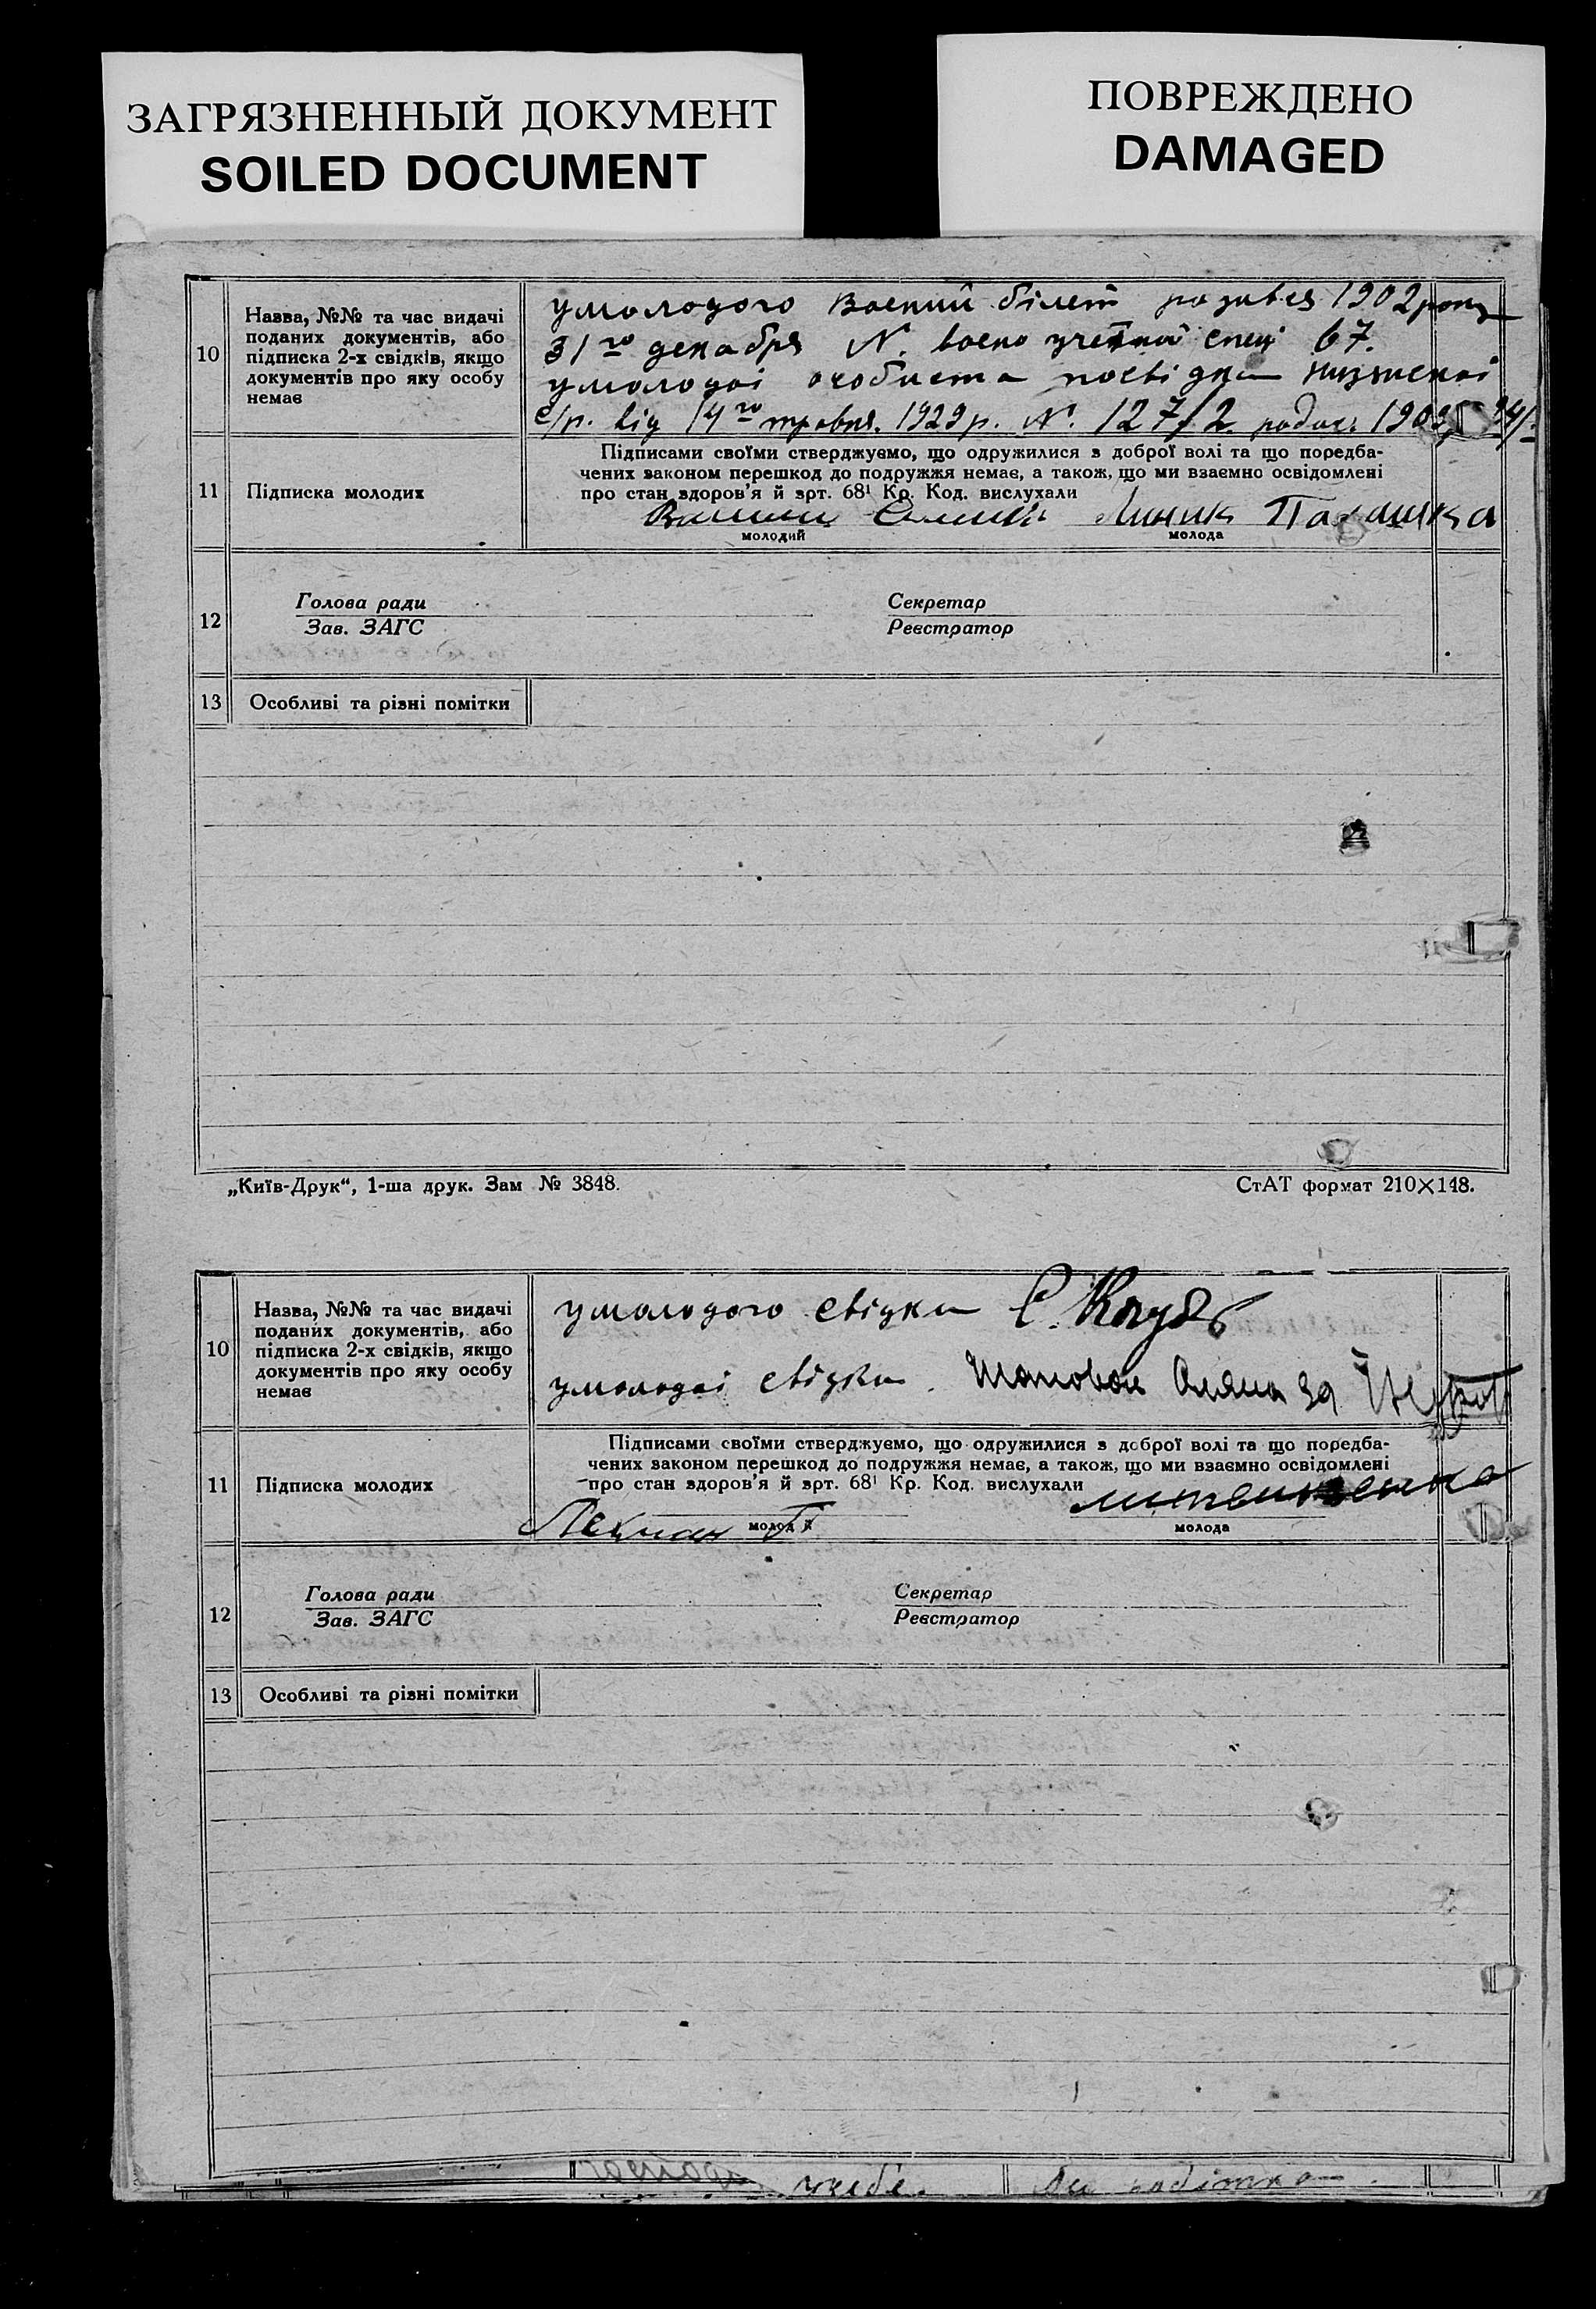 ЗАГРЯЗНЕННЫЙ ДОКУМЕНТ
SOILED DOCUMENT
ПОВРЕЖДЕНО
DAMAGED
10
Назва, №№ та час видачі
поданих документів, або
підписка 2-х свідків, якщо
документів про яку особу
немає
умолодого воений білет 1902 року
31го декабря N. воено учетный спец 67.
умолодоі особиста посвідка
с/р. від 14го травня. 1929 р. N. 127/2
11
Підписка молодих
Підписами своїми стверджуємо, що одружилися з доброї волі та що поредба-
чених законом перешкод до подружжя немає, а також, що ми взаємно освідомлені
про стан здоров'я й зрт. 68¹ Кр. Код. вислухали
Линник
молодий
молода
12
Голова ради
Зав. ЗАГС
Секретар
Реєстратор
13
Особливі та різні помітки
„Київ-Друк“, 1-ша друк. Зам № 3848.
СтАТ формат 210×148.
10
Назва, №№ та час видачі
поданих документів, або
підписка 2-х свідків, якщо
документів про яку особу
немає
умолодого свідки
умолодоі свідки
11
Підписка молодих
Підписами своїми стверджуємо, що одружилися з доброї волі та що поредба-
чених законом перешкод до подружжя немає, а також, що ми взаємно освідомлені
про стан здоров'я й зрт. 68¹ Кр. Код. вислухали
молодий
молода
12
Голова ради
Зав. ЗАГС
Секретар
Реєстратор
13
Особливі та різні помітки